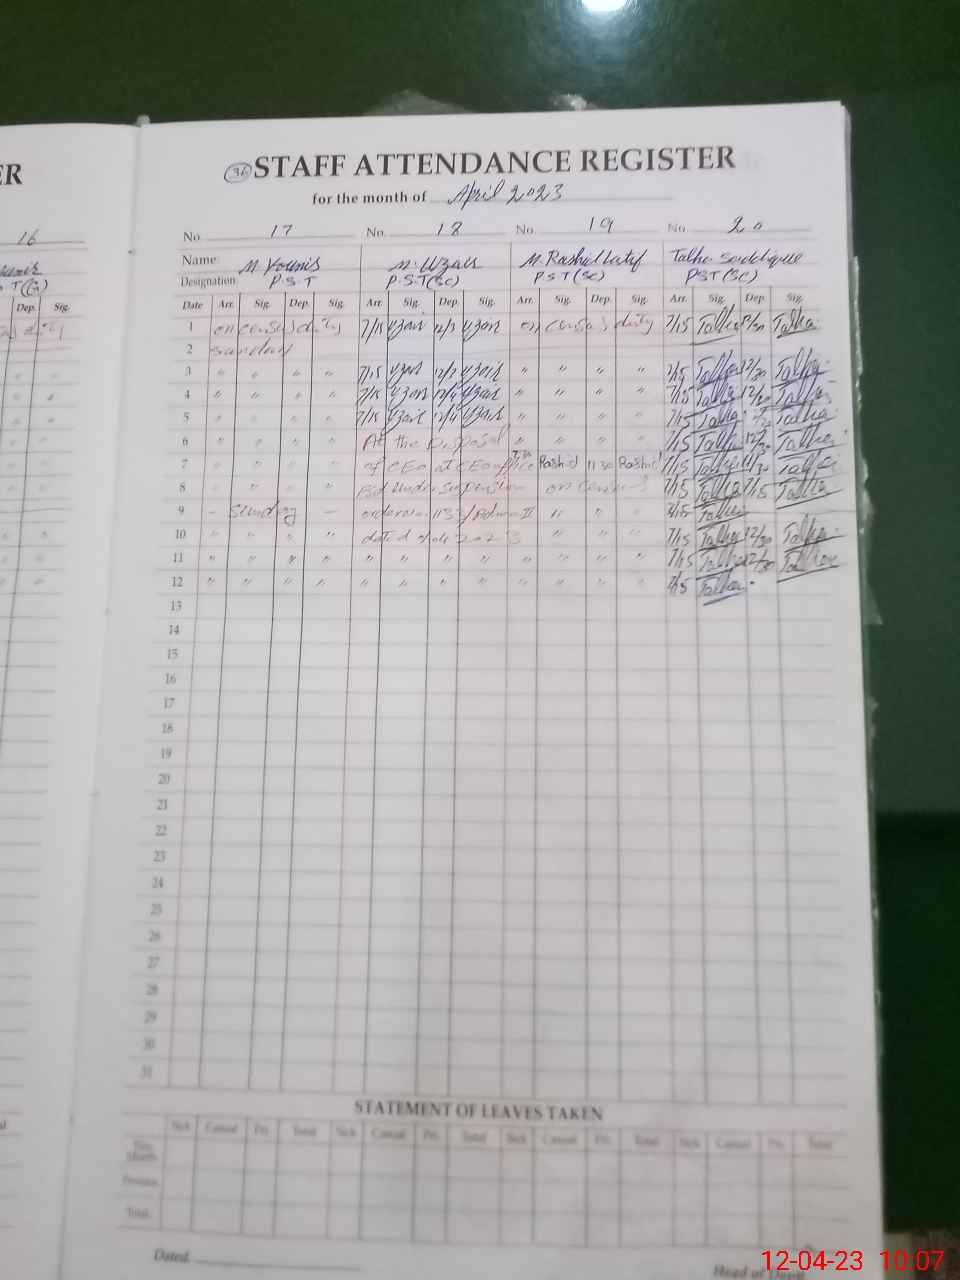 ER
(36) STAFF ATTENDANCE REGISTER
for the month of April 2023
16
No. 17 No. 18 No. 19 No. 20
Name: M. Younis M. Uzair M. Rashid Latif Talha Siddique
Designation P.S.T P.S.T (SC) PST (SC) PST (SC)
Dep. Sig.
Date Arr. Sig. Dep. Sig. Arr. Sig. Dep. Sig. Arr. Sig. Dep. Sig. Arr. Sig. Dep. Sig.
1 on census duty 7/15 Uzair Uzair on census duty 7/15 Talha Talha
2
3 " " " " 7/15 Uzair Uzair " " " " 7/15 Talha 12/30 Talha
4 " " " " 7/15 Uzair Uzair " " " " 7/15 Talha Talha
5 " " " " 7/15 Uzair Uzair " " " " 7/15 Talha Talha
6 " " " " At the Disposal " " " " 7/15 Talha 12/30 Talha
7 " " " " of CEO at CEO office Rashid 11 30 Rashid 7/15 Talha 11/30 Talha
8 " " " " suspension on census 7/15 Talha Talha
9 - Sunday - " " " 7/15 Talha
10 " " " " dated 2023 " " " 7/15 Talha 12/30 Talha
11 " " " " " " " " " " " " 7/15 Talha 12/30 Talha
12 " " " " " " " " " " " " 7/15 Talha
13
14
15
16
17
18
19
20
21
22
23
24
25
26
27
28
29
30
31
STATEMENT OF LEAVES TAKEN
Sick Casual Pri. Total Sick Casual Pri. Total Sick Casual Pri. Total Sick Casual Pri. Total
This Month
Previous
Total
Dated
Head of
12-04-23 10:07